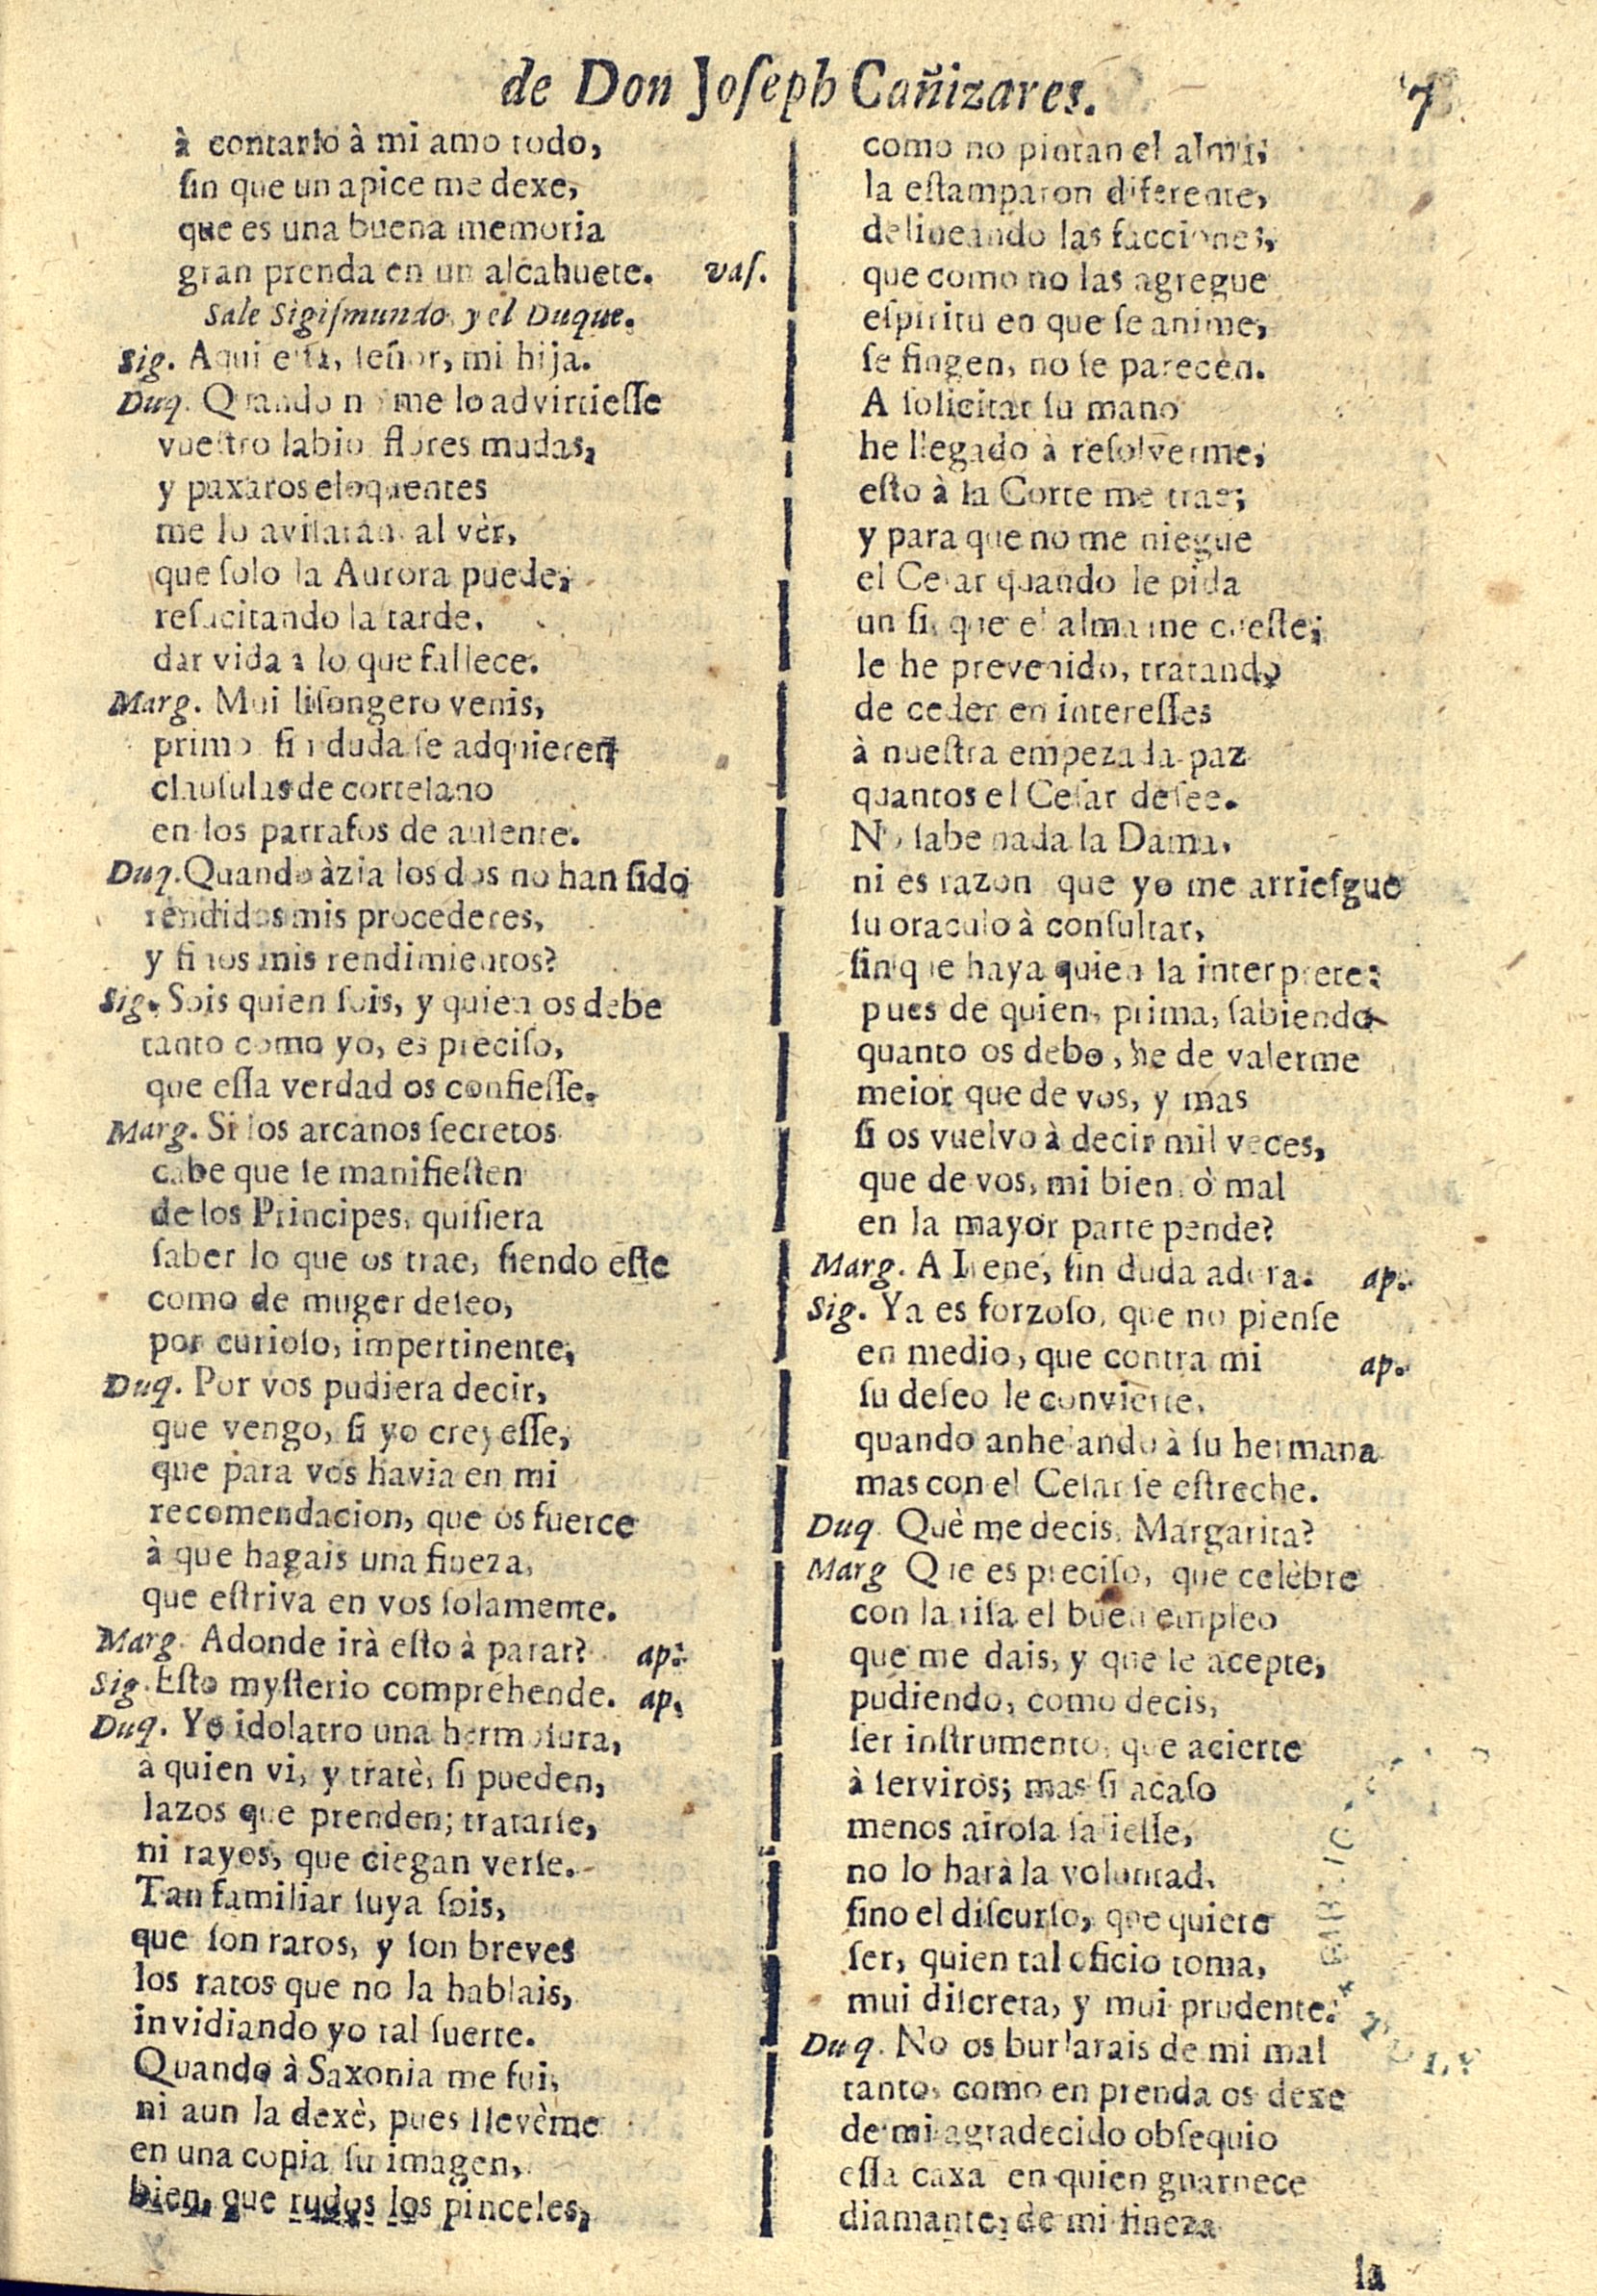 de Don Joſeph Cañizares.
7
à contarlo à mi amo todo,
ſin que un apice me dexe,
que es una buena memoria
gran prenda en un alcahuete. vaſ.
Sale Sigiſmundo, y el Duque.
Sig. Aqui eſtà, ſeñor, mi hija.
Duq. Quando no me lo advirtieſſe
vueſtro labio, flores mudas,
y paxaros eloquentes
me lo aviſaràn, al vèr,
que ſolo la Aurora puede,
reſucitando la tarde,
dar vida à lo que fallece.
Marg. Mui liſongero venis,
primo, ſin duda ſe adquieren
clauſulas de corteſano
en los parrafos de auſente.
Duq. Quando àzia los dos no han ſido
rendidos mis procederes,
y finos mis rendimientos?
Sig. Sois quien ſois, y quien os debe
tanto como yo, es preciſo,
que eſſa verdad os confieſſe.
Marg. Si los arcanos ſecretos
cabe que ſe manifieſten
de los Principes, quiſiera
ſaber lo que os trae, ſiendo eſte
como de muger deſeo,
por curioſo, impertinente,
Duq. Por vos pudiera decir,
que vengo, ſi yo creyeſſe,
que para vos havia en mi
recomendacion, que os fuerce
à que hagais una fineza,
que eſtriva en vos ſolamente.
Marg. Adonde irà eſto à parar? ap.
Sig. Eſto myſterio comprehende. ap.
Duq. Yo idolatro una hermoſura,
à quien vi, y tratè, ſi pueden,
lazos que prenden; tratarſe,
ni rayos, que ciegan verſe.
Tan familiar ſuya ſois,
que ſon raros, y ſon breves
los ratos que no la hablais,
invidiando yo tal ſuerte.
Quando à Saxonia me fui,
ni aun la dexè, pues llevème
en una copia ſu imagen,
bien, que rudos los pinceles,
como no pintan el alma,
la eſtamparon diferente,
delineando las facciones,
que como no las agregue
eſpiritu en que ſe anime,
ſe fingen, no ſe parecen.
A ſolicitar ſu mano
he llegado à reſolverme,
eſto à la Corte me trae;
y para que no me niegue
el Ceſar quando le pida
un ſi, que el alma me cueſte;
le he prevenido, tratando
de ceder en intereſſes
à nueſtra empezada paz
quantos el Ceſar deſee.
No ſabe nada la Dama,
ni es razon que yo me arrieſgue
ſu oraculo à conſultar,
ſin que haya quien la interprete:
pues de quien, prima, ſabiendo
quanto os debo, he de valerme
meior que de vos, y mas
ſi os vuelvo à decir mil veces,
que de vos, mi bien, ò mal
en la mayor parte pende?
Marg. A Irene, ſin duda adora. ap.
Sig. Ya es forzoſo, que no pienſe
en medio, que contra mi ap.
ſu deſeo le convierte,
quando anhelando à ſu hermana
mas con el Ceſar ſe eſtreche.
Duq. Què me decis, Margarita?
Marg Que es preciſo, que celèbre
con la riſa el buen empleo
que me dais, y que le acepte,
pudiendo, como decis,
ſer inſtrumento, que acierte
à ſerviros; mas ſi acaſo
menos airoſa ſalieſſe,
no lo harà la voluntad,
ſino el diſcurſo, que quiere
ſer, quien tal oficio toma,
mui diſcreta, y mui prudente.
Duq. No os burlarais de mi mal
tanto, como en prenda os dexe
de mi agradecido obſequio
eſſa caxa en quien guarnece
diamante, de mi fineza
la